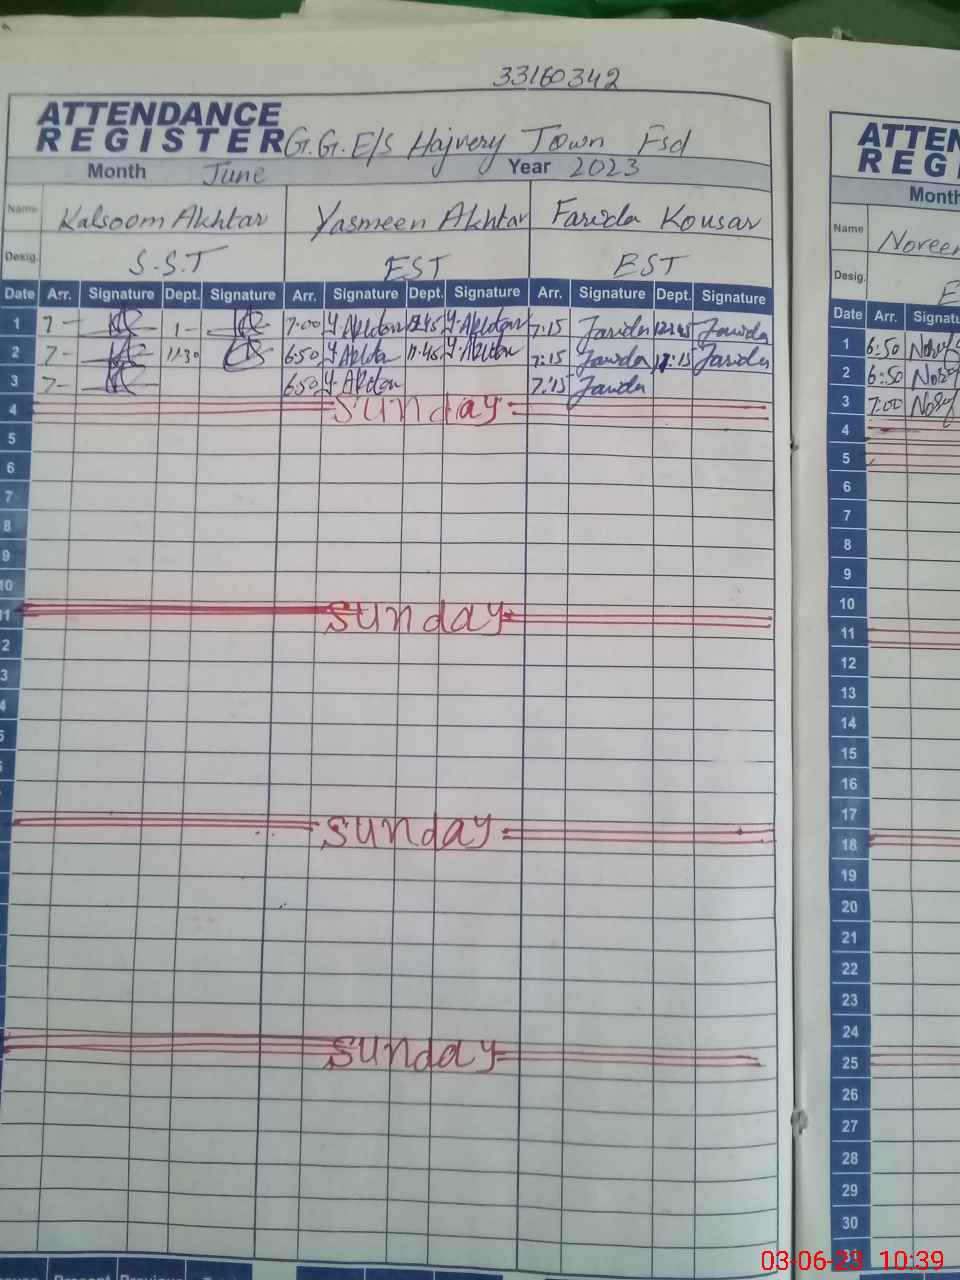 33160342
ATTENDANCE
REGISTER G.G.E/S Hajvery Town Fsd
Month June Year 2023
Name Kalsoom Akhtar Yasmeen Akhtar Farida Kousar
Desig. S.S.T EST EST
Date Arr. Signature Dept. Signature Arr. Signature Dept. Signature Arr. Signature Dept. Signature
1 7- 1- 7:00 Y.Akhtar 12:45 Y.Akhtar 7:15 Farida 12:45 Farida
2 7- 11:30 6:50 Y.Akhtar 11:45 Y.Akhtar 7:15 Farida 11:15 Farida
3 7- 6:50 Y.Akhtar 7:15 Farida
4 Sunday
5
6
7
8
9
10
11 Sunday
2
3
4
5
Sunday
Sunday
Present Previous
ATTEN
REG
Month
Name Noreen
Desig. E
Date Arr. Signatu
1 6:50
2 6:50
3 7:00
4
5
6
7
8
9
10
11
12
13
14
15
16
17
18
19
20
21
22
23
24
25
26
27
28
29
30
31
03-06-23 10:39